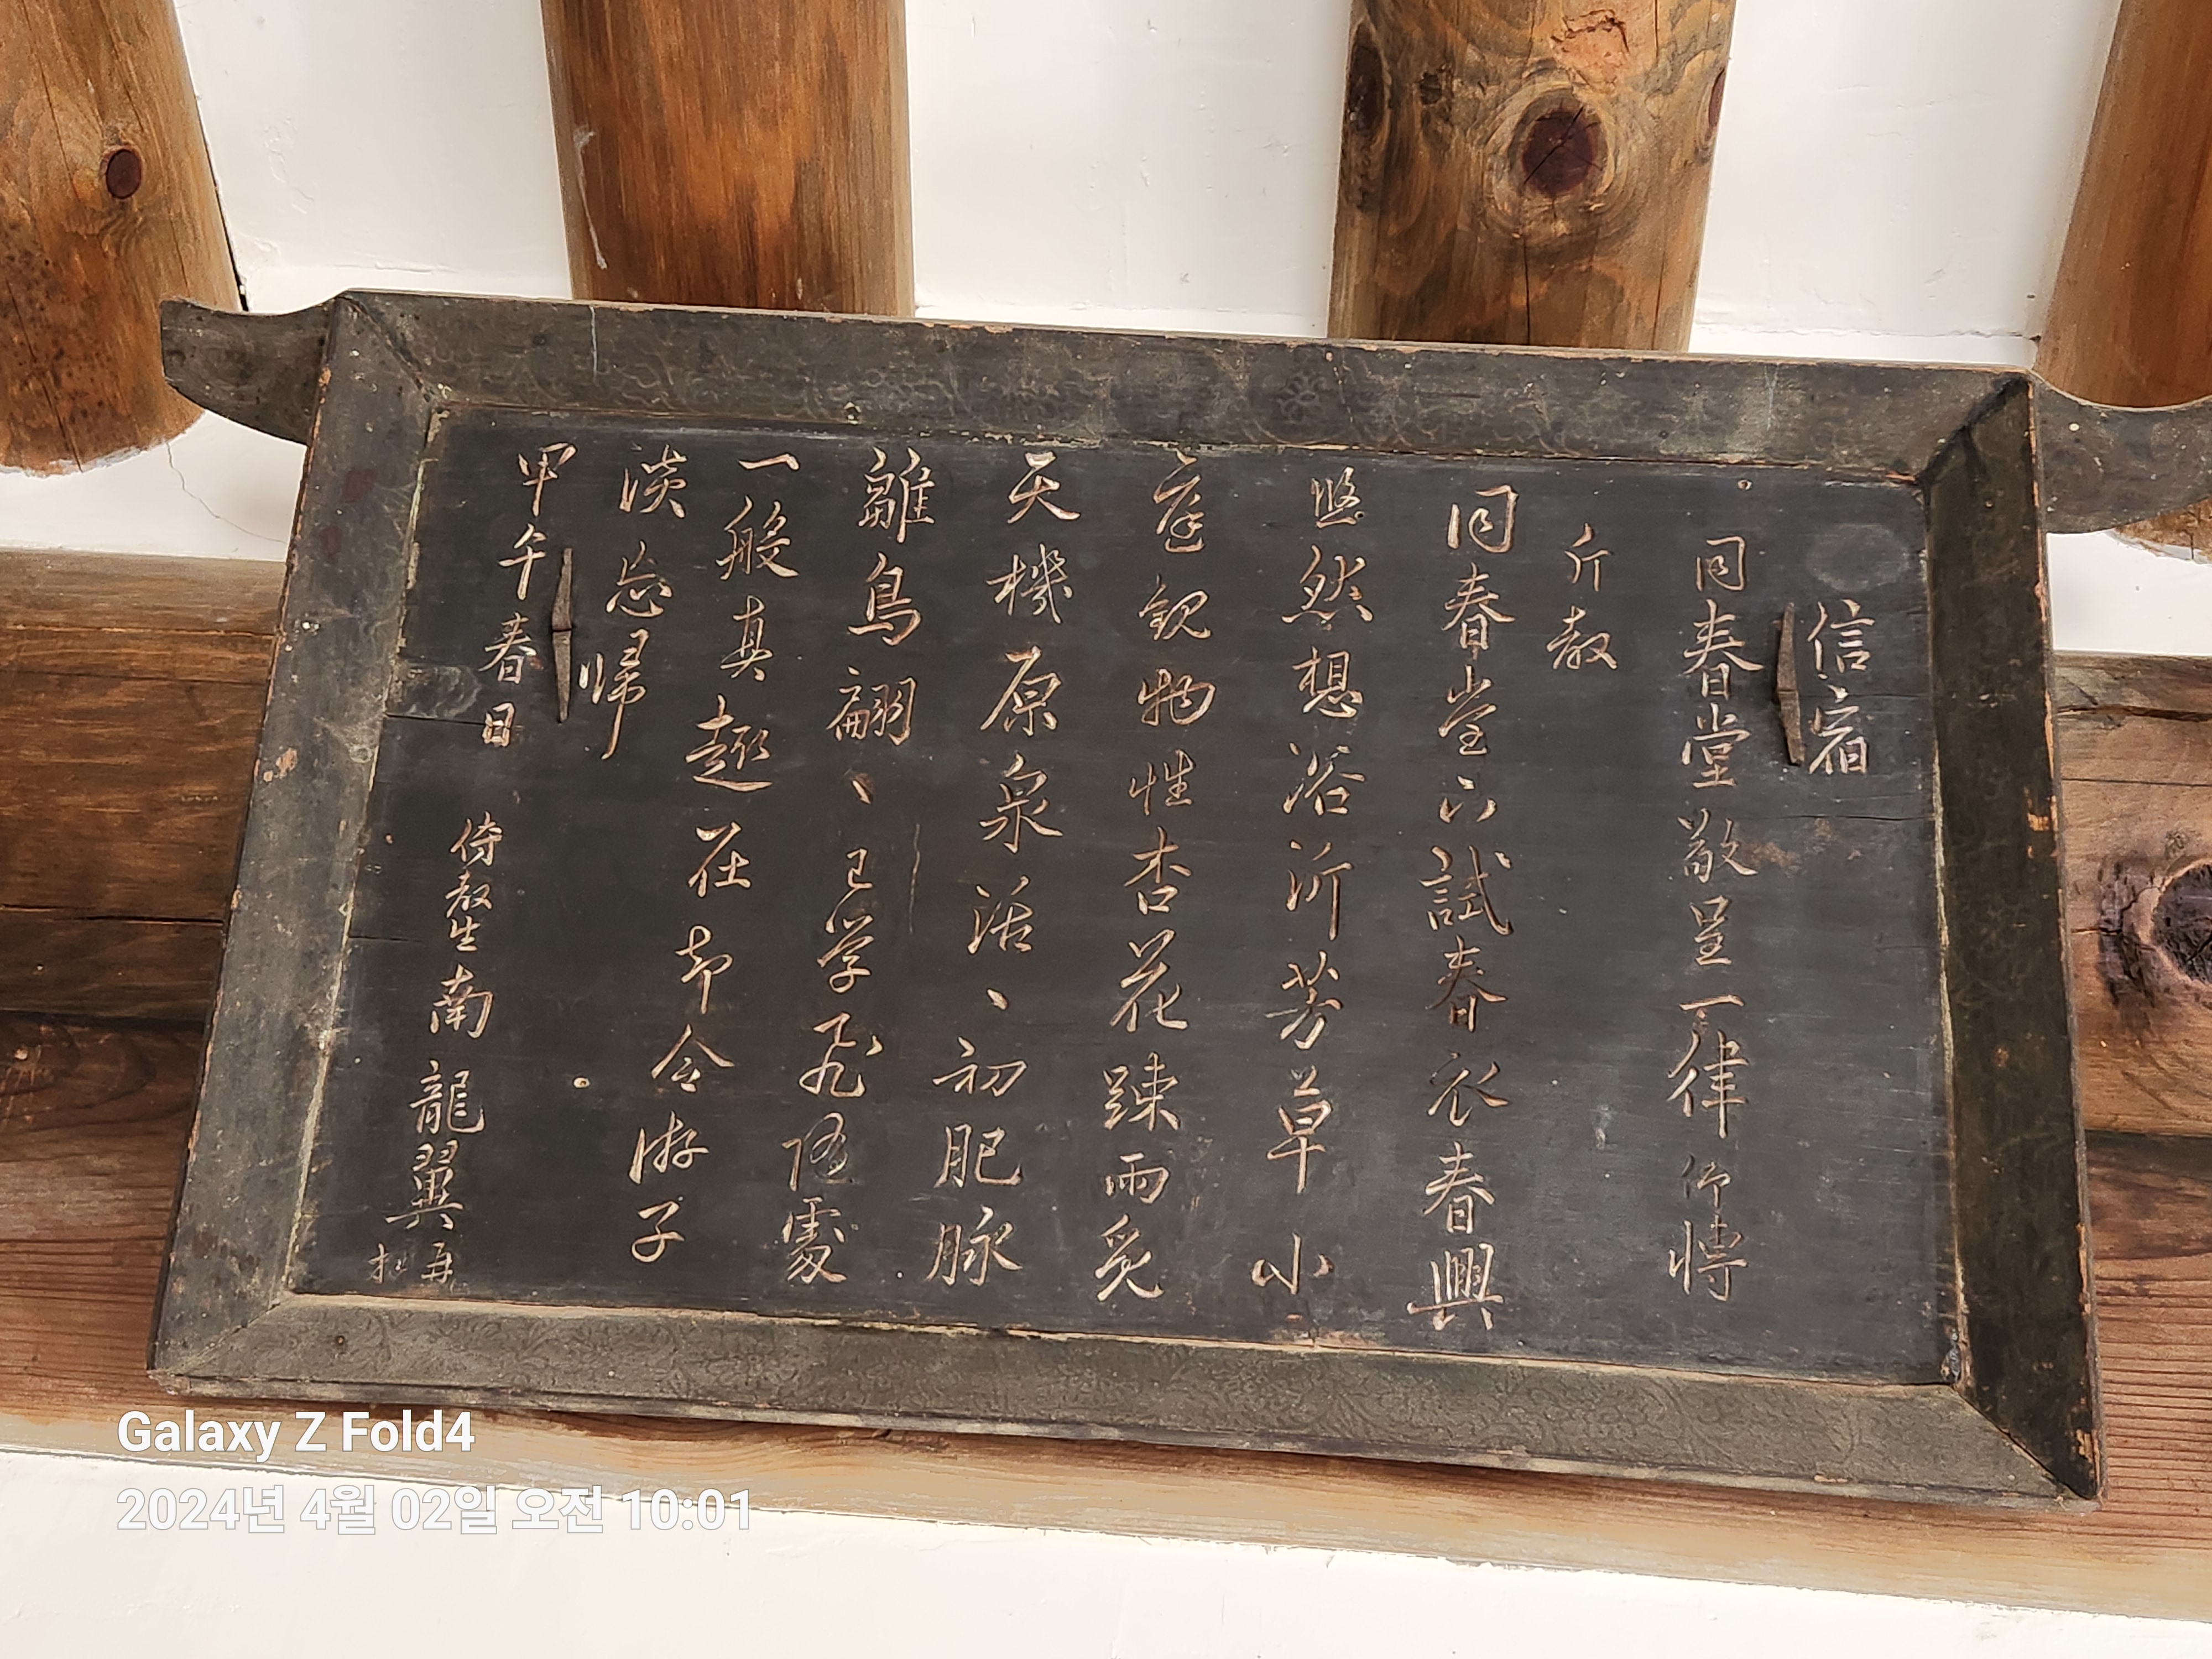 信宿
同春堂敬呈一律仰博
斤敎
同春堂下試春衣春興
悠然想浴沂芳草小
庭觀物性杏花踈雨炙
天機原泉活〻初肥脉
雛鳥翩〻已学飛隨處
一般真趣在却令游子
淡忘歸
甲午春日 侍敎生南龍翼再拜
Galaxy Z Fold4
2024년 4월 02일 오전 10:01